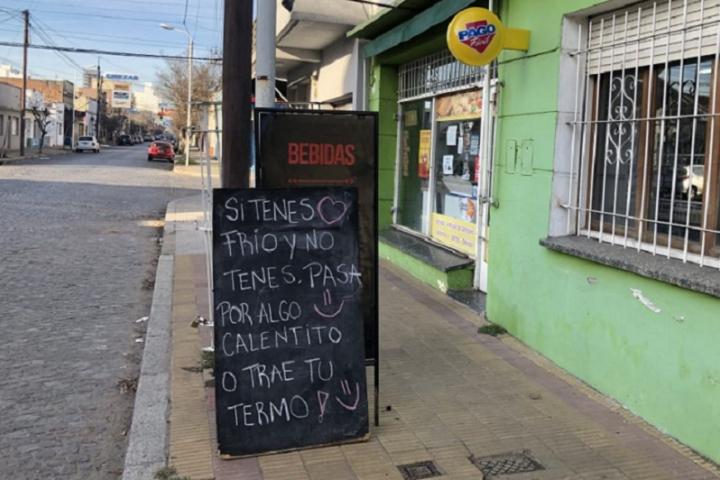 PAGO
fácil
BEBIDAS
SI TENES
FRÍO Y NO
TENES, PASA
POR ALGO
CALENTITO
O TRAE TU
TERMO!